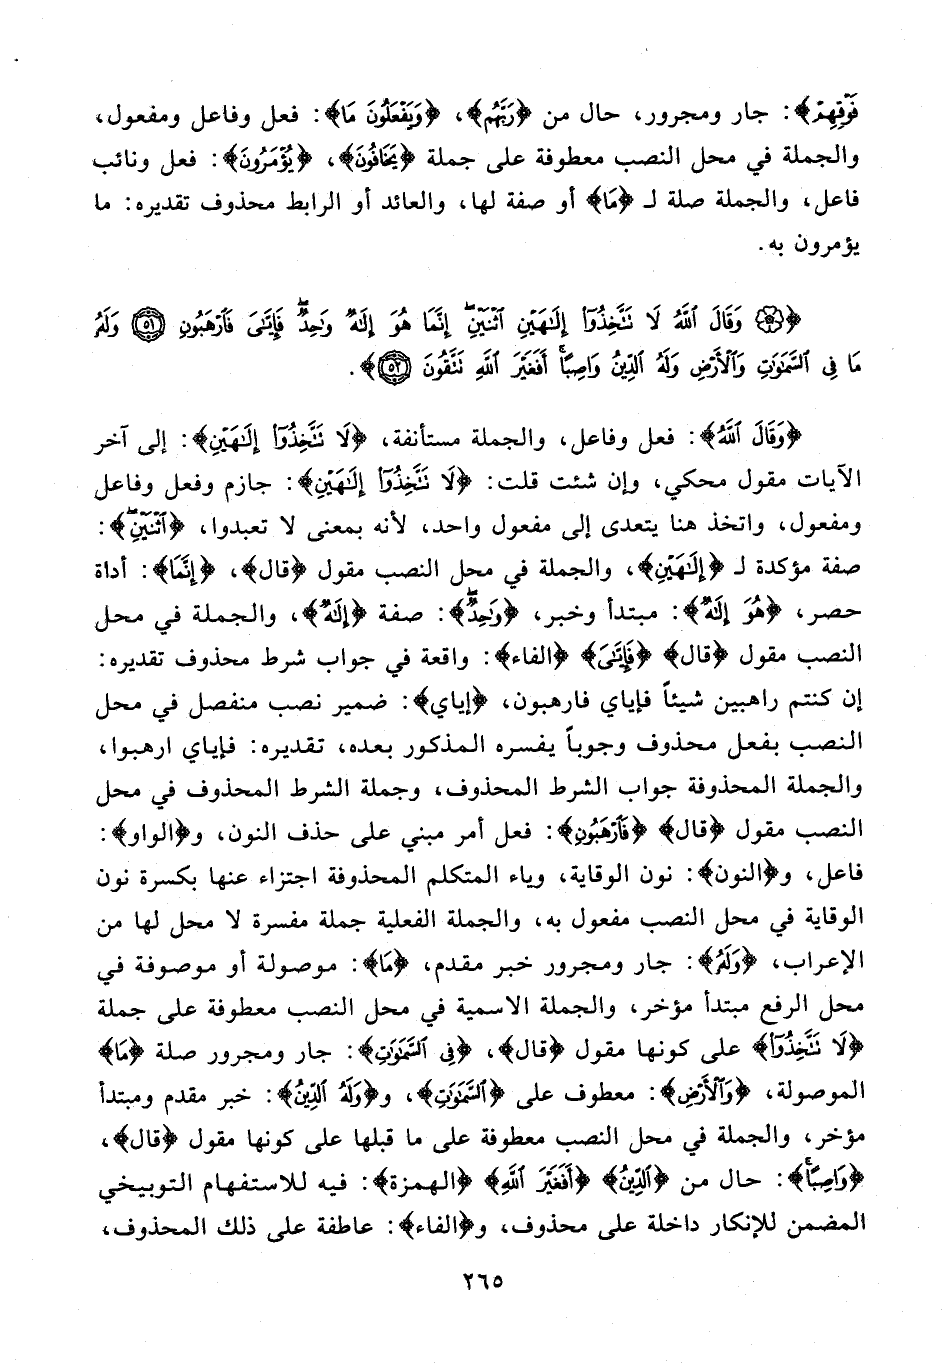 فَوْقِهِمْ﴾: جار ومجرور، حال من ﴿رَبَّهُم﴾، ﴿وَيَفْعَلُونَ مَا﴾: فعل وفاعل ومفعول،
والجملة في محل النصب معطوفة على جملة ﴿يَخَافُونَ﴾، ﴿يُؤْمَرُونَ﴾: فعل ونائب
فاعل، والجملة صلة لـ ﴿مَا﴾ أو صفة لها، والعائد أو الرابط محذوف تقديره: ما
يؤمرون به.
﴿۞ وَقَالَ ٱللَّهُ لَا تَتَّخِذُوٓا۟ إِلَـٰهَيْنِ ٱثْنَيْنِ ۖ إِنَّمَا هُوَ إِلَـٰهٌ وَٰحِدٌ ۖ فَإِيَّـٰىَ فَٱرْهَبُونِ ٥١ وَلَهُۥ
مَا فِى ٱلسَّمَـٰوَٰتِ وَٱلْأَرْضِ وَلَهُ ٱلدِّينُ وَاصِبًا ۚ أَفَغَيْرَ ٱللَّهِ تَتَّقُونَ ٥٢﴾.
﴿وَقَالَ ٱللَّهُ﴾: فعل وفاعل، والجملة مستأنفة، ﴿لَا تَتَّخِذُوٓا۟ إِلَـٰهَيْنِ﴾: إلى آخر
الآيات مقول محكي، وإن شئت قلت: ﴿لَا تَتَّخِذُوٓا۟ إِلَـٰهَيْنِ﴾: جازم وفعل وفاعل
ومفعول، واتخذ هنا يتعدى إلى مفعول واحد، لأنه بمعنى لا تعبدوا، ﴿ٱثْنَيْنِ ۖ﴾:
صفة مؤكدة لـ ﴿إِلَـٰهَيْنِ﴾، والجملة في محل النصب مقول ﴿قال﴾، ﴿إِنَّمَا﴾: أداة
حصر، ﴿هُوَ إِلَـٰهٌ﴾: مبتدأ وخبر، ﴿وَٰحِدٌ ۖ﴾: صفة ﴿إِلَـٰهٌ﴾، والجملة في محل
النصب مقول ﴿قال﴾ ﴿فَإِيَّـٰىَ﴾ ﴿الفاء﴾: واقعة في جواب شرط محذوف تقديره:
إن كنتم راهبين شيئاً فإياي فارهبون، ﴿إياي﴾: ضمير نصب منفصل في محل
النصب بفعل محذوف وجوباً يفسره المذكور بعده، تقديره: فإياي ارهبوا،
والجملة المحذوفة جواب الشرط المحذوف، وجملة الشرط المحذوف في محل
النصب مقول ﴿قال﴾ ﴿فَٱرْهَبُونِ﴾: فعل أمر مبني على حذف النون، و﴿الواو﴾:
فاعل، و﴿النون﴾: نون الوقاية، وياء المتكلم المحذوفة اجتزاء عنها بكسرة نون
الوقاية في محل النصب مفعول به، والجملة الفعلية جملة مفسرة لا محل لها من
الإعراب، ﴿وَلَهُۥ﴾: جار ومجرور خبر مقدم، ﴿مَا﴾: موصولة أو موصوفة في
محل الرفع مبتدأ مؤخر، والجملة الاسمية في محل النصب معطوفة على جملة
﴿لَا تَتَّخِذُوٓا۟﴾ على كونها مقول ﴿قال﴾، ﴿فِى ٱلسَّمَـٰوَٰتِ﴾: جار ومجرور صلة ﴿مَا﴾
الموصولة، ﴿وَٱلْأَرْضِ﴾: معطوف على ﴿ٱلسَّمَـٰوَٰتِ﴾، و﴿وَلَهُ ٱلدِّينُ﴾: خبر مقدم ومبتدأ
مؤخر، والجملة في محل النصب معطوفة على ما قبلها على كونها مقول ﴿قال﴾،
﴿وَاصِبًا ۚ﴾: حال من ﴿ٱلدِّينُ﴾ ﴿أَفَغَيْرَ ٱللَّهِ﴾ ﴿الهمزة﴾: فيه للاستفهام التوبيخي
المضمن للإنكار داخلة على محذوف، و﴿الفاء﴾: عاطفة على ذلك المحذوف،
٢٦٥